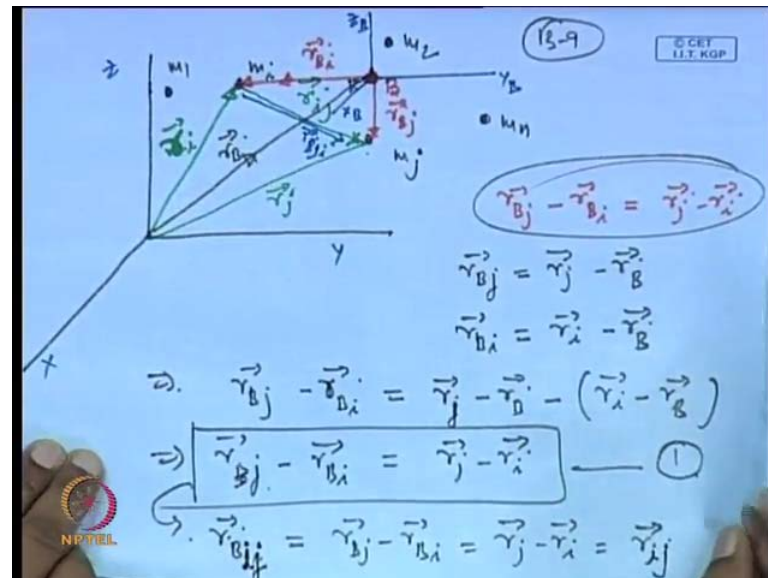 B-9
© CET
I.I.T. KGP
Z
m1
mi
r⃗Bi
zB
m2
B
YB
r⃗ij
xB
r⃗Bj
mn
r⃗i
r⃗B
mj
r⃗j
Y
X
r⃗Bj - r⃗Bi = r⃗j - r⃗i
r⃗Bj = r⃗j - r⃗B
r⃗Bi = r⃗i - r⃗B
⇒. r⃗Bj - r⃗Bi = r⃗j - r⃗B - (r⃗i - r⃗B)
⇒ r⃗Bj - r⃗Bi = r⃗j - r⃗i —— ①
→. r⃗Bij = r⃗Bj - r⃗Bi = r⃗j - r⃗i = r⃗ij
NPTEL